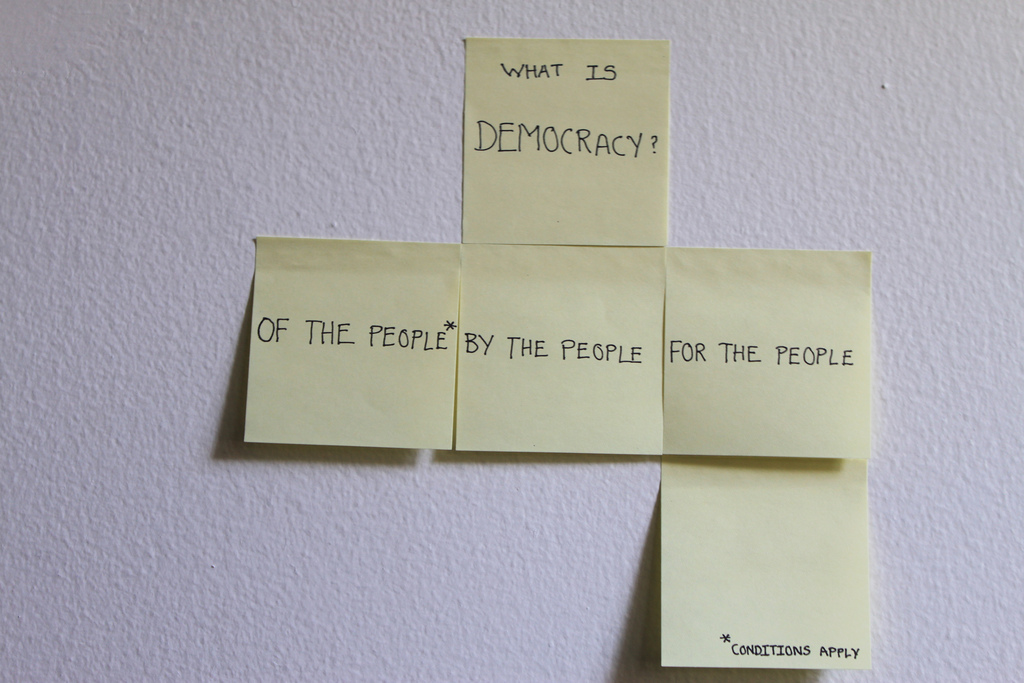 WHAT IS
DEMOCRACY?
OF THE PEOPLE*
BY THE PEOPLE
FOR THE PEOPLE
*CONDITIONS APPLY